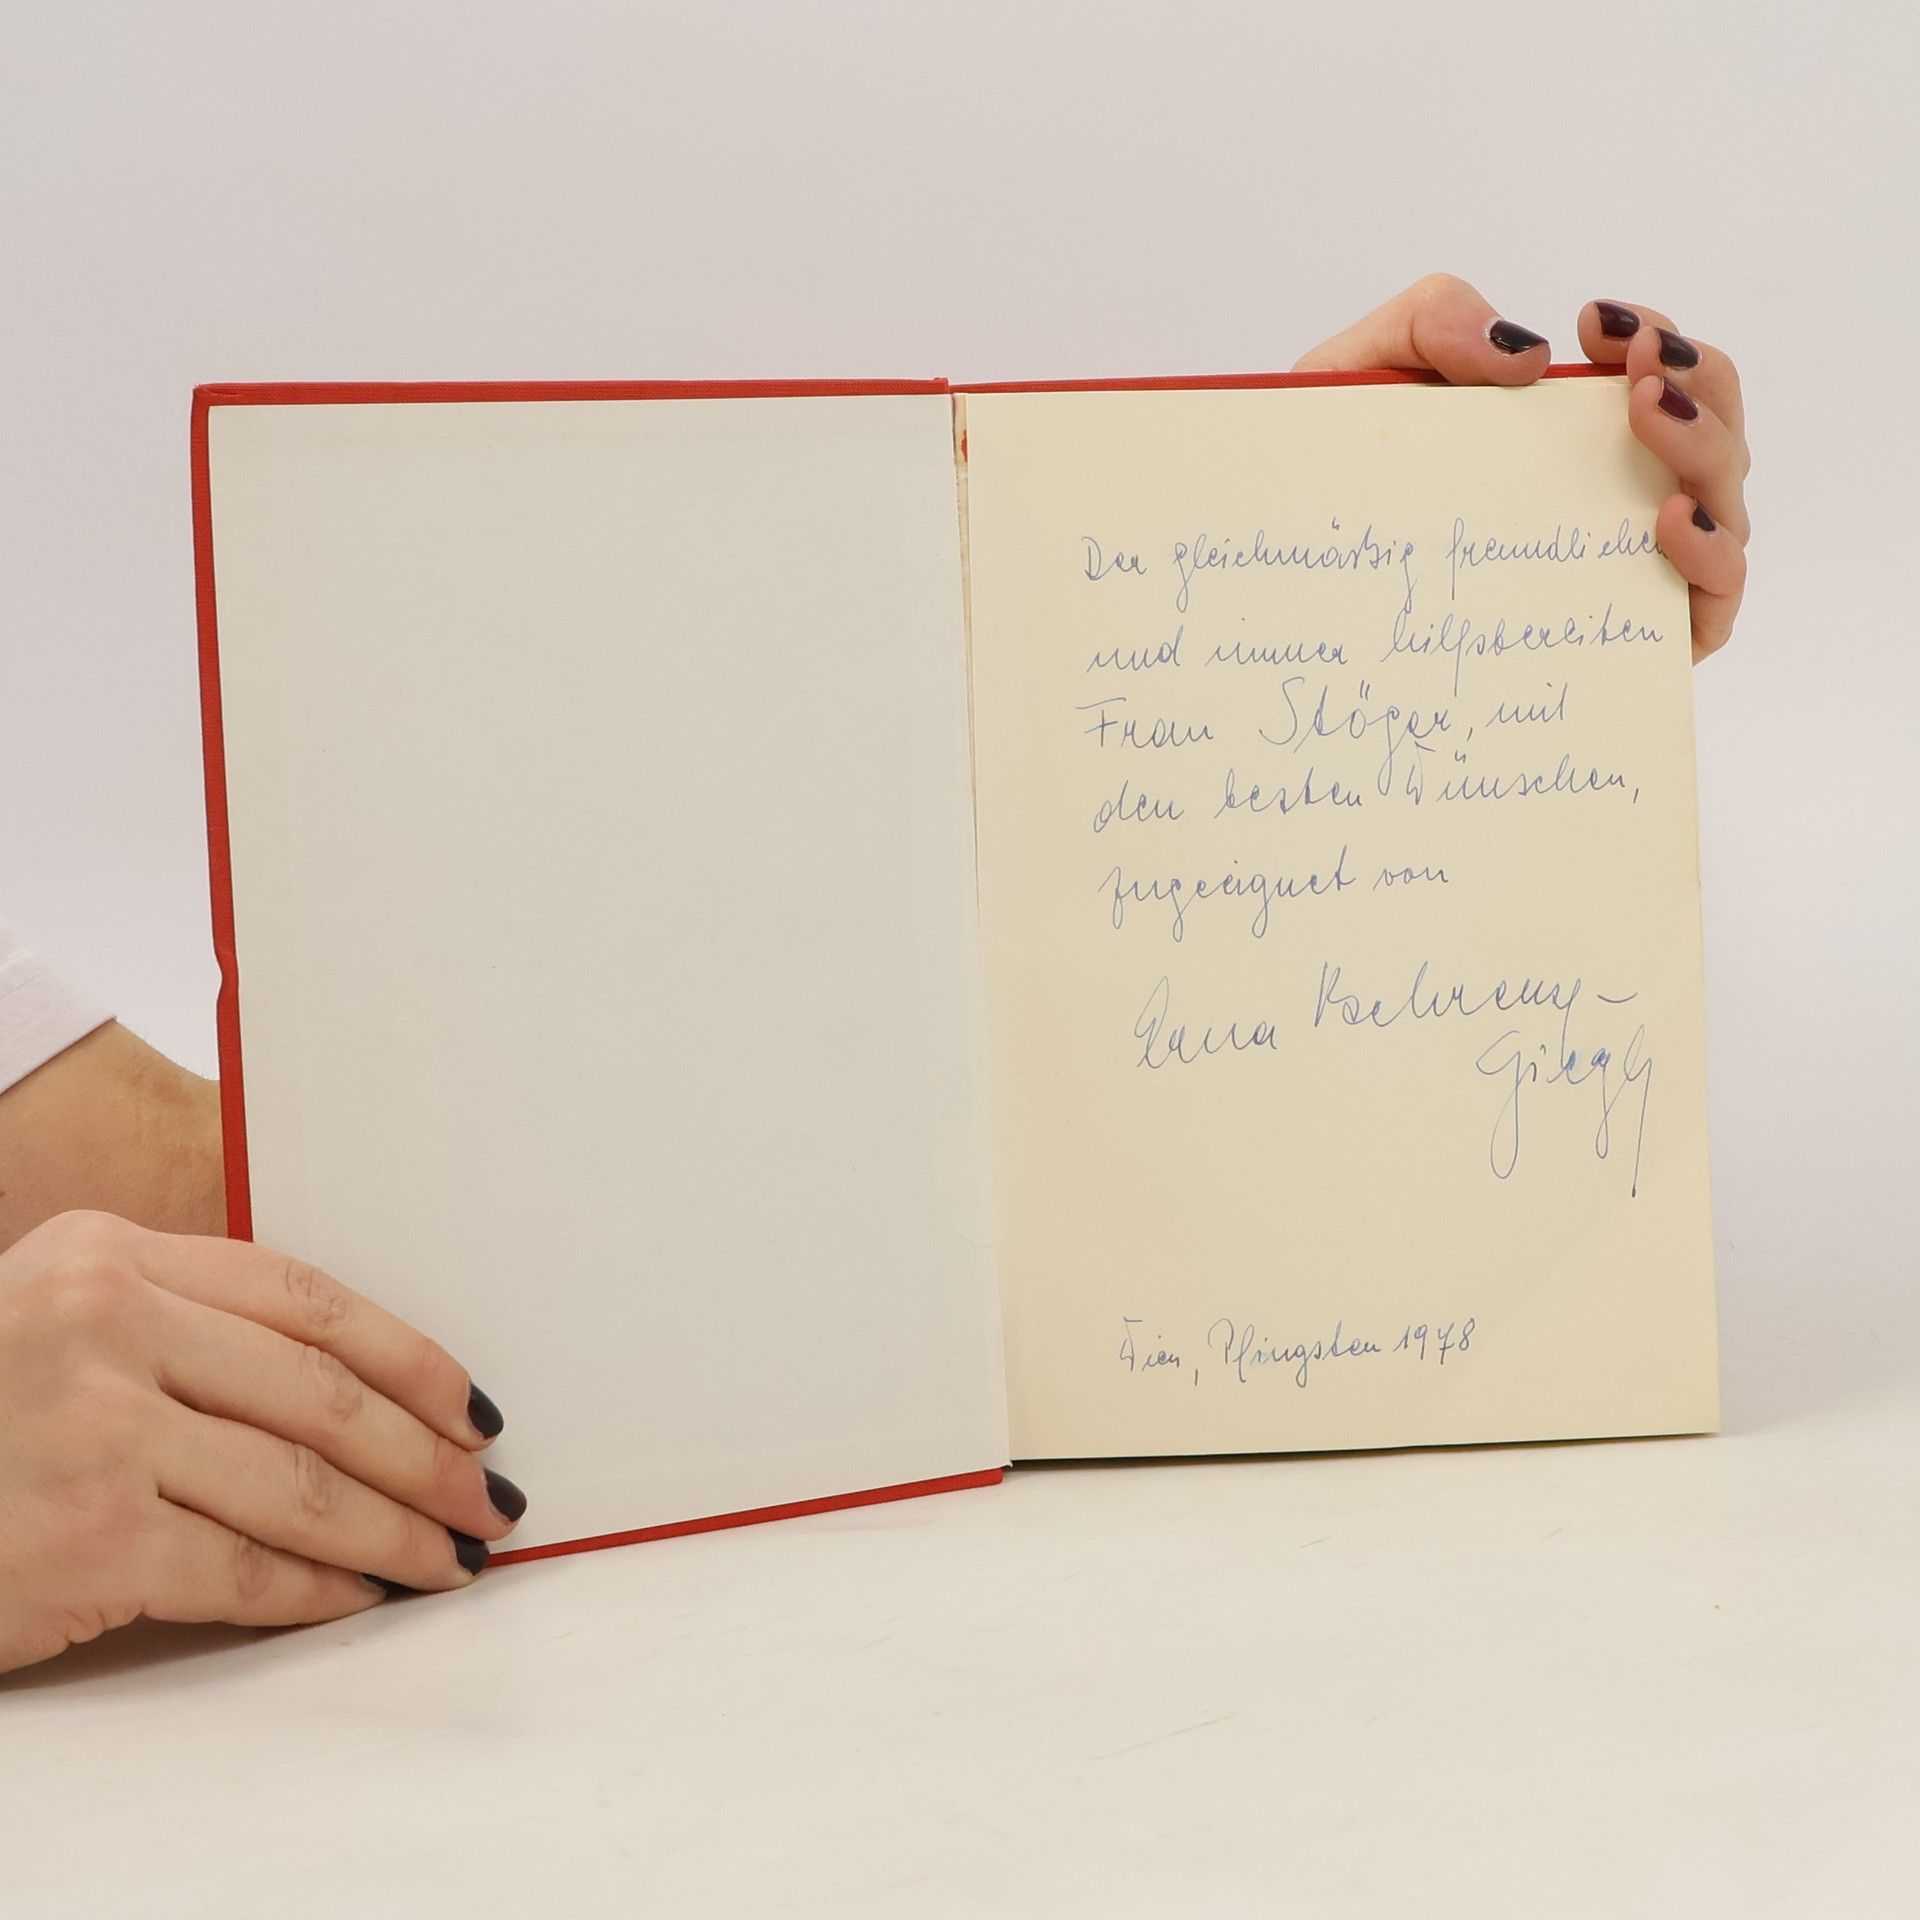 Der gleichmäßig freundlichen
und immer hilfsbereiten
Frau Stöger, mit
den besten Wünschen,
zugeeignet von
Erna
Wien, Pfingsten 1978